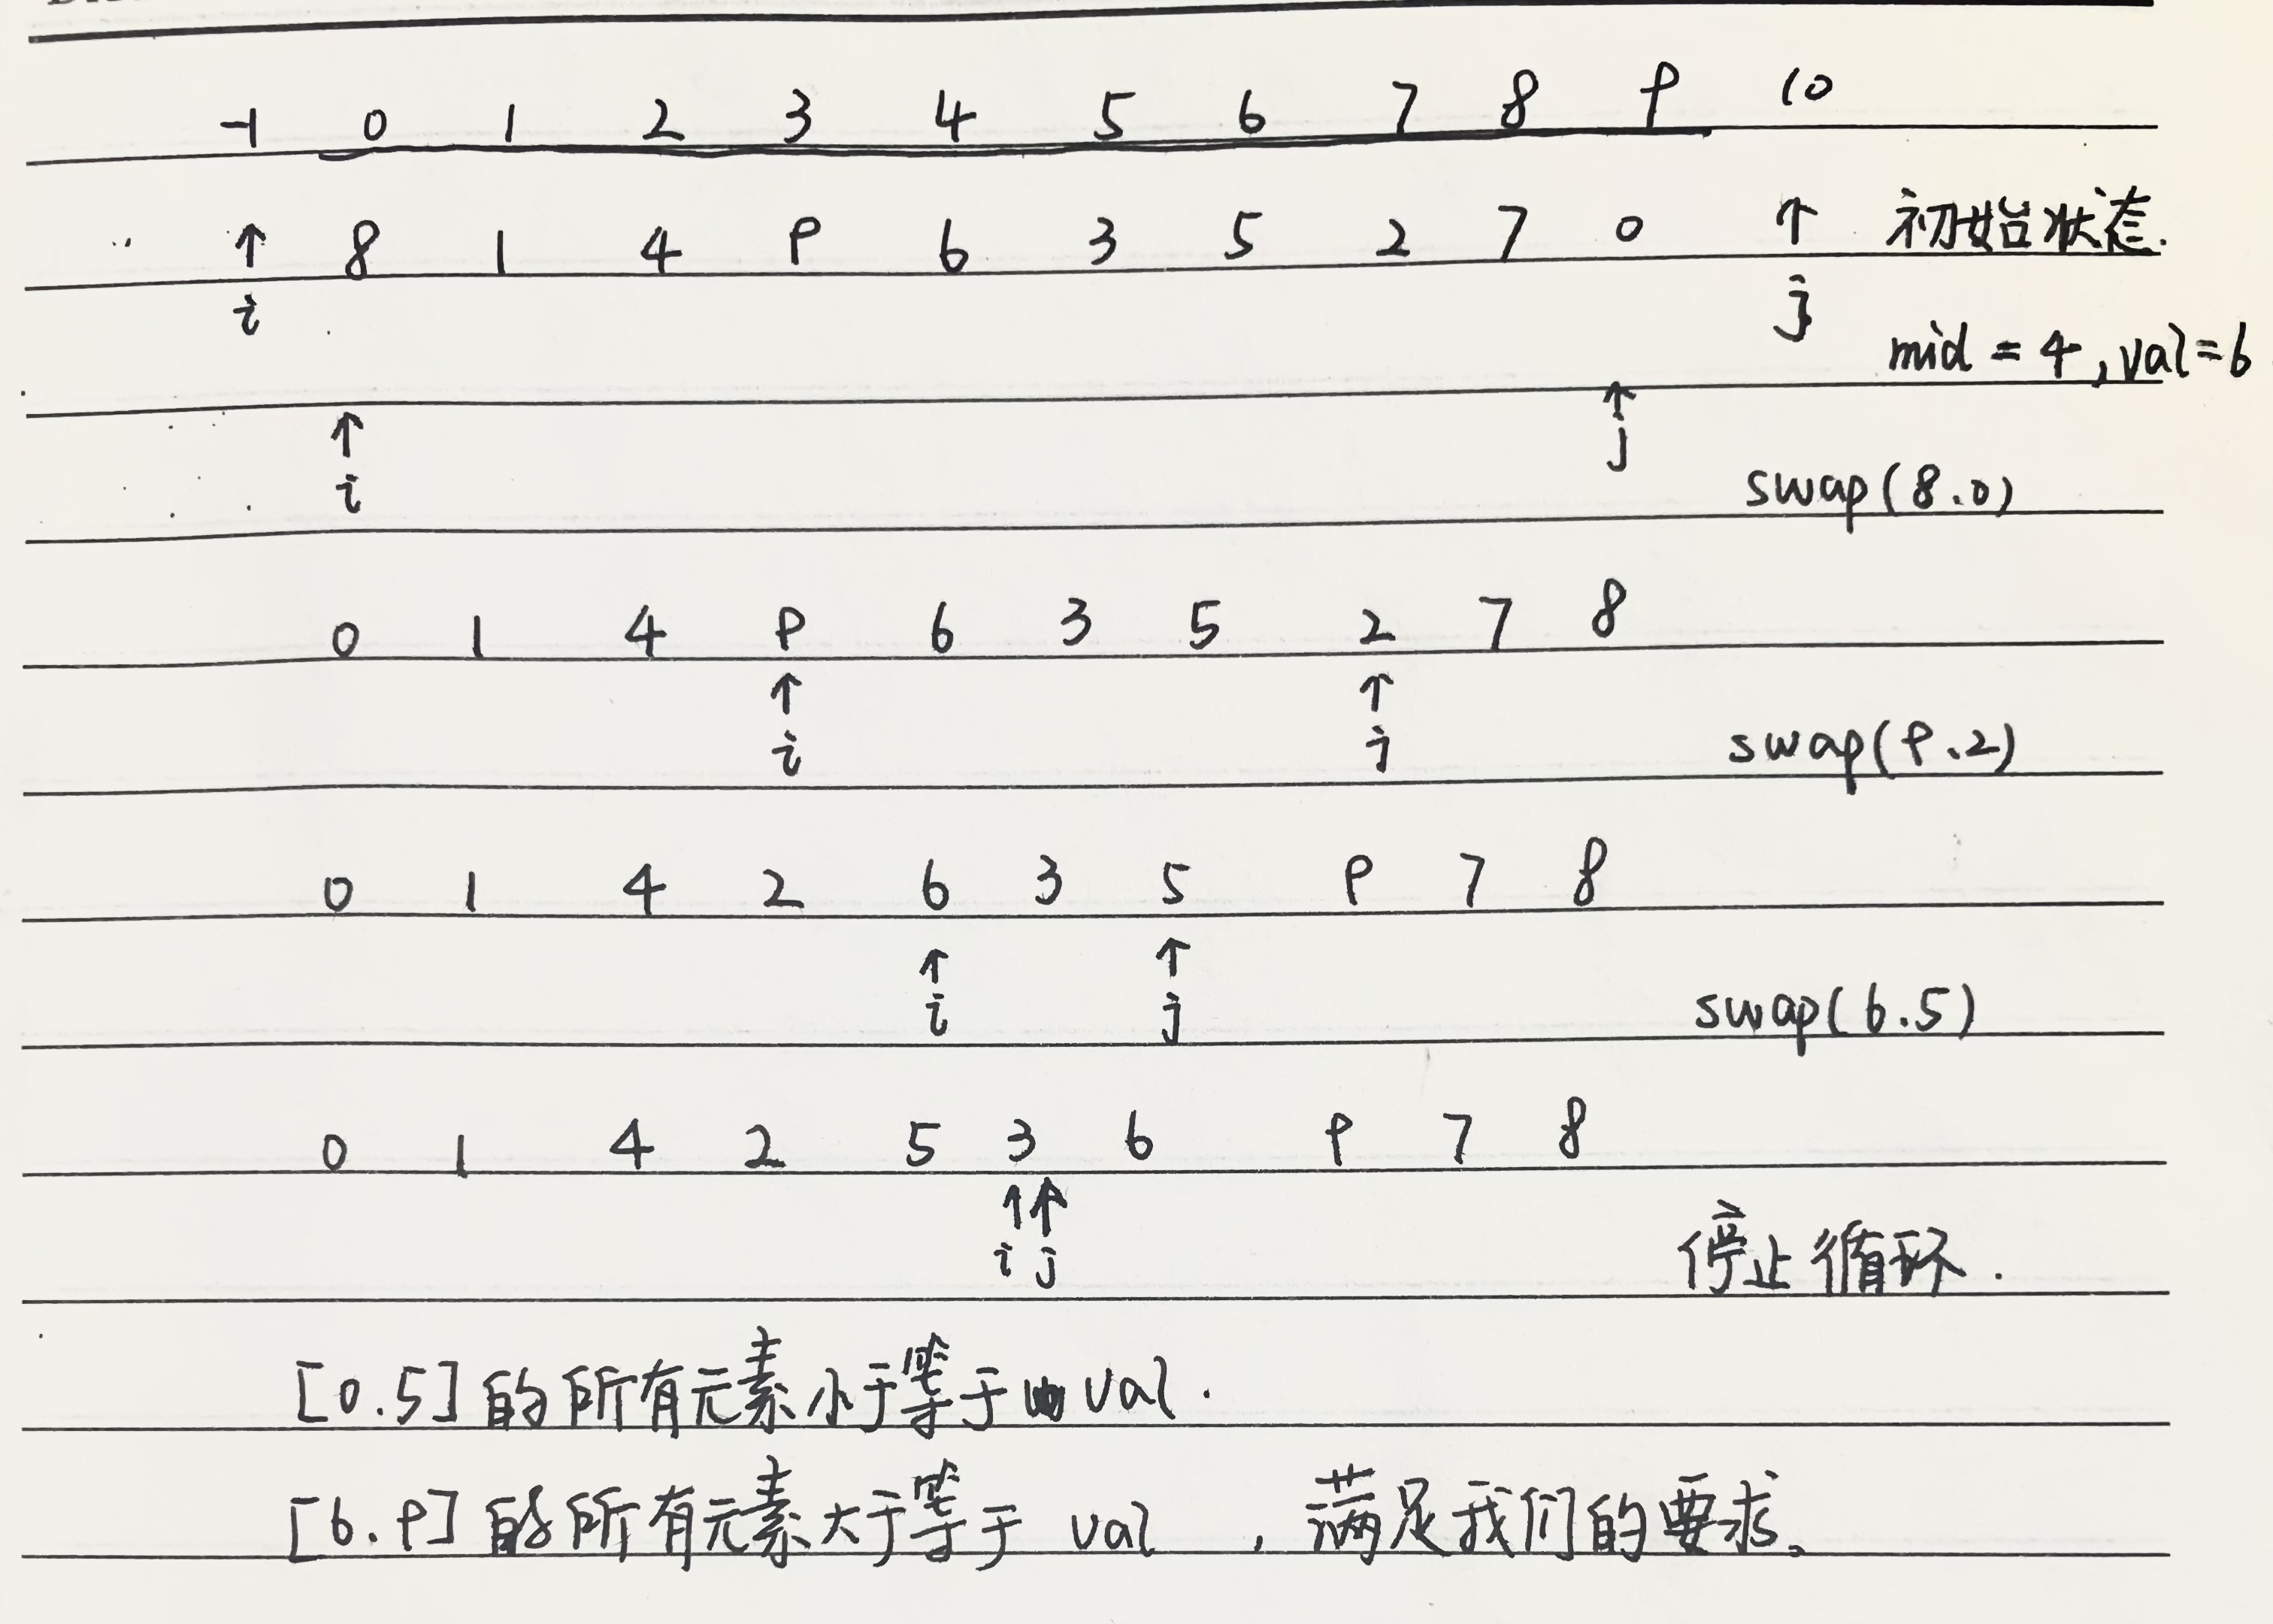 -1 0 1 2 3 4 5 6 7 8 9 10
↑ 8 1 4 9 6 3 5 2 7 0 ↑ 初始状态.
i j
mid = 4, val=6
↑ ↑
i j
swap(8.0)
0 1 4 9 6 3 5 2 7 8
↑ ↑
i j swap(9.2)
0 1 4 2 6 3 5 9 7 8
↑ ↑
i j swap(6.5)
0 1 4 2 5 3 6 9 7 8
↑↑
i j 停止循环.
[0.5]的所有元素小于等于val.
[6.9]的所有元素大于等于 val ,满足我们的要求。